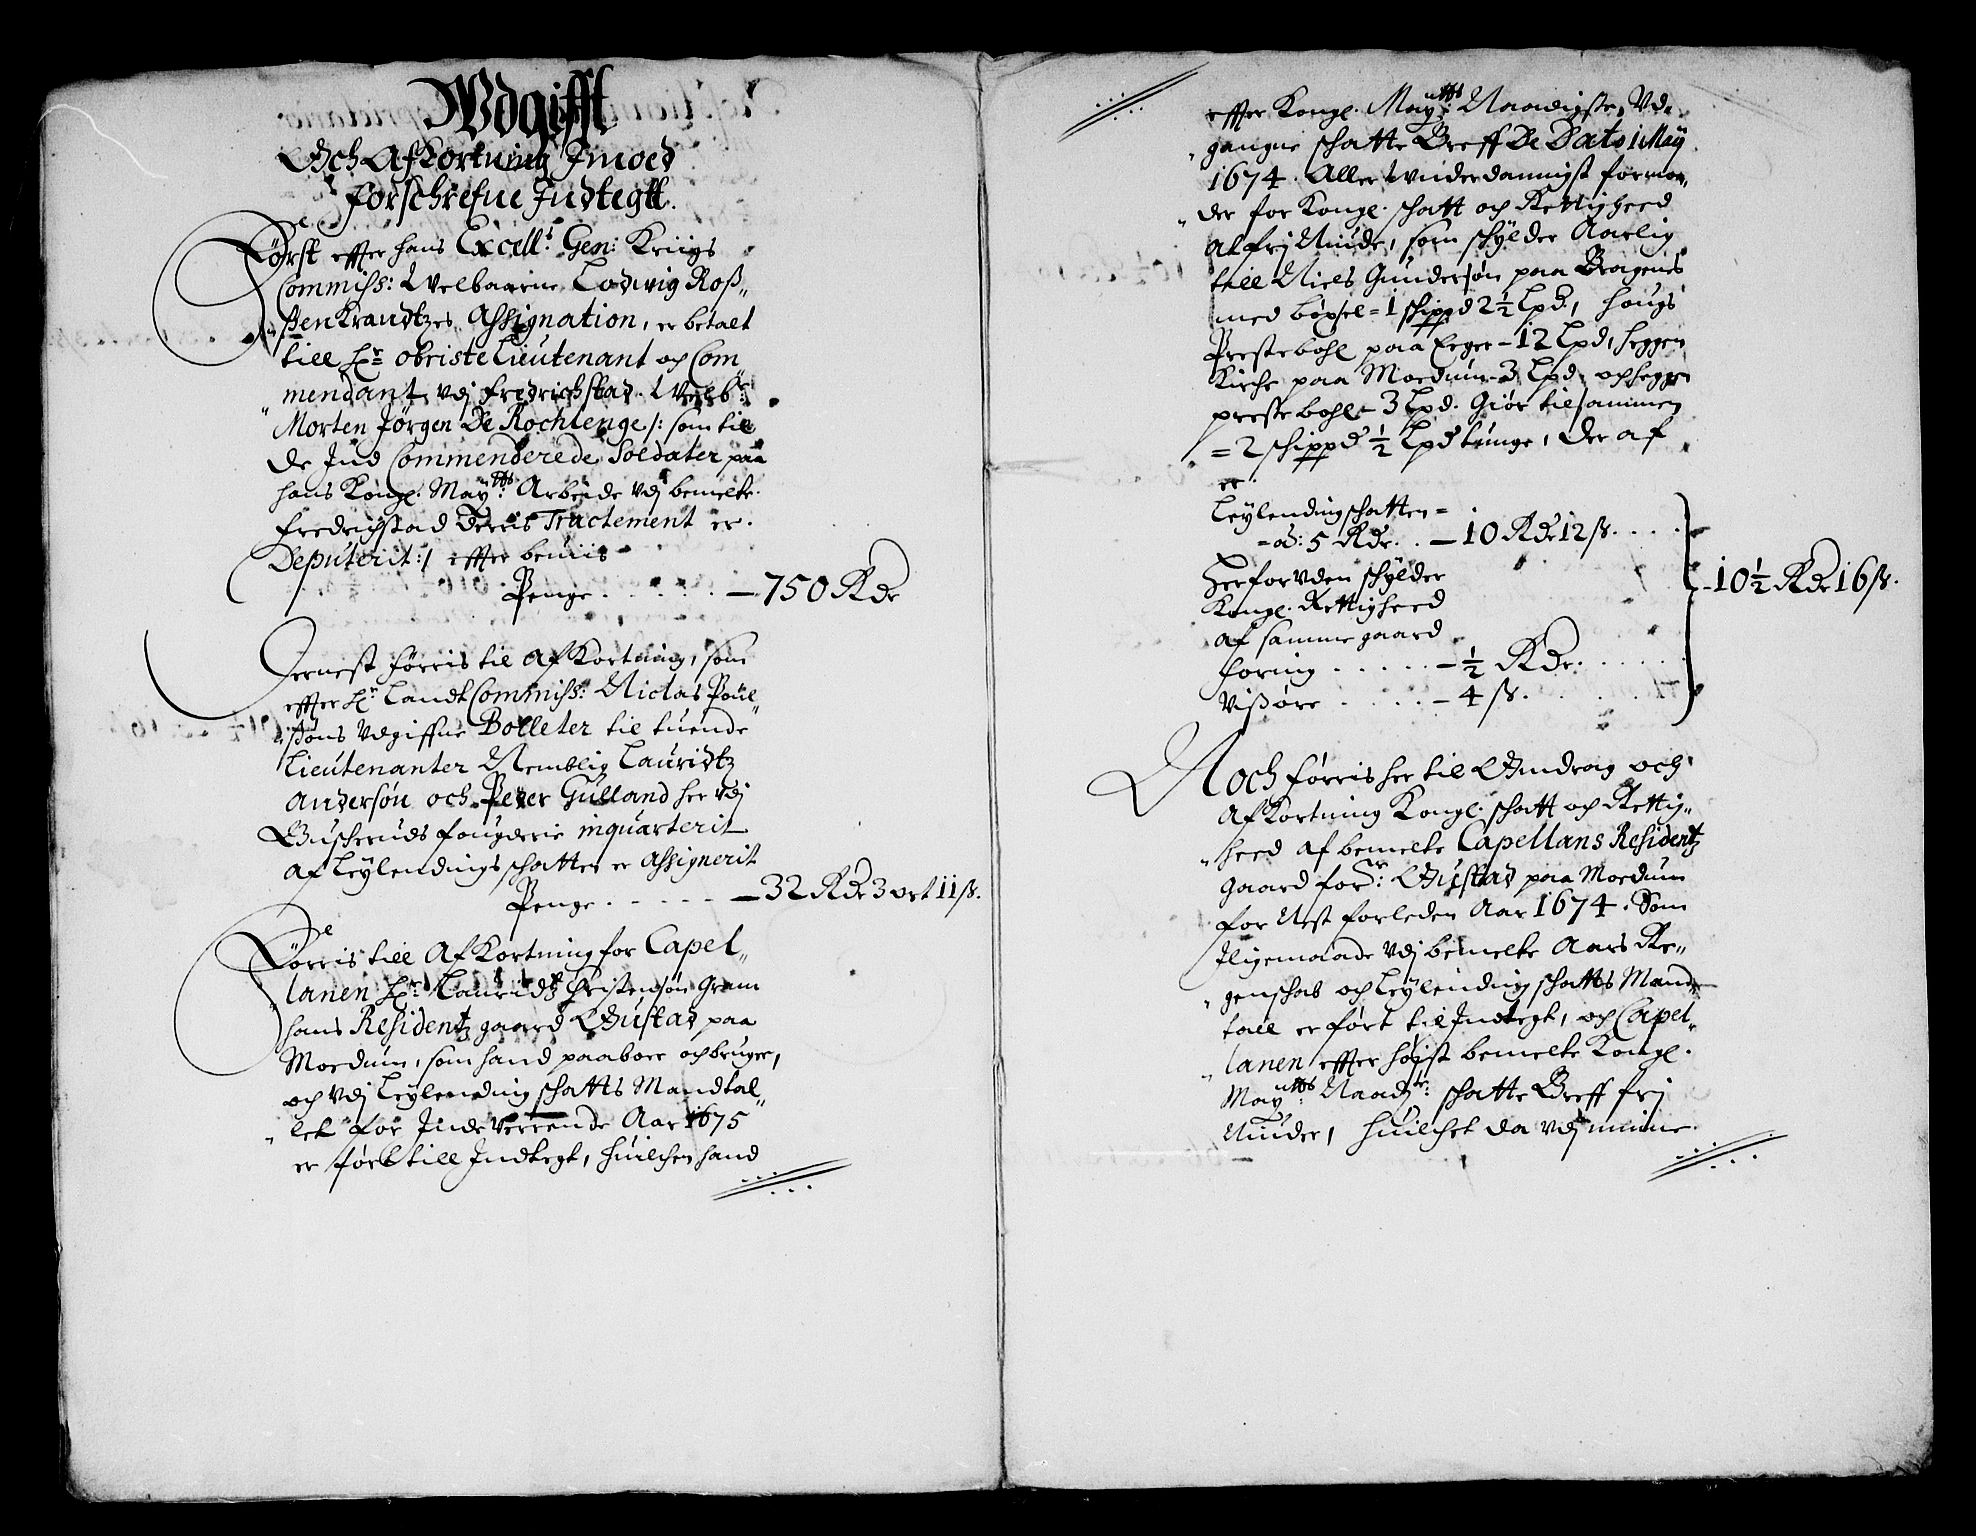 Wdgifft
Och Afkortning Jmoed
forschrefne Jndtegtt.
Først effter hans Excell: Gen: Kriigs
Commiss: Welbaarne Lodwig Roß„
„ßenKrandtzes Assignation, er betalt
till Hr: obriste Lieutenant och Com„
mendant vdj Fredrichstad Welb:
Morten Jørgen De Rochlenge /: som til
de Jnd Commenderede Soldater paa
hans Kongl: Maytts: Arbeide vdj bemelte
Fredrichstad derris Tractement er
Deputerit :/ effter beviis
Penge . . . . . — 750 Rdr
Dernest førris til AfKortning, som
effter Hr: LandtCommiss: Niclas Poúl„
„ßøns vdgiffne Bolleter til tuende
Lieutenanter Nemblig Lauridtz
Andersøn och Peter Gulland her vdj
Buscheruds fougderie inquarterit
af Leylendings schatten er assignerit
Penge . . . . . — 32 Rdr 3 ort 11 ß.
Førris till AfKortning for Capel„
„lanen Hr: Lauridtz Christensøn Gram
hans Residentz gaard Bustad paa
Moedum, som hand paaboer och bruger,
och vdj Leylending schatts Mandtal„
„let for Jndeverrende Aar 1675
er ført till Jndtegt, huilchen hand
effter Kongl: Maytts: Naadigste, Vd„
„gangne schatte Breff De Dato 1 Maÿ
1674. Aller vnderdannigst formo„
„der for Kongl: schatt och Rettigheed
at frj Niude, som schylder Aarlig
till Niels Gundersøn paa Bragenes
med bøxsel = 1 schippd 2½ Lpd, Hougs
Prestebohl paa Eeger – 12 Lpd, Heggen
Kirche paa Moedum – 3 Lpd, och Heggen
prestebohl – 3 Lpd. Giør tilsammen
= 2 schippd ½ Lpd tunge, der af
er.
Leylending schatten =
= à: 5 Rdr. . — 10 Rdr 12 ß. . . .
Herforvden schylder
Kongl: Rettigheed
af samme gaard
foring . . . . . — ½ Rdr. . . . .
Vißøre . . . . . — 4 ß. . . .
– 10 ½ Rdr 16 ß.
Noch førris her til Vdmdrag och
AfKortning Kongl: schatt och Rettig„
„heed af bemelte Capellans Residentz
gaard for: Bustad paa Moedum
for Nest forleden Aar 1674. Som
Jligemaade vdj bemelte Aars Re„
„genschab och Leylending schatts Mand„
tall er ført til Jndtegt, och Capel„
„lanen effter højst bemelte Kongl:
Maytts: Naadr: schatte Breff frj
Niuder, huilchet da vdj minne